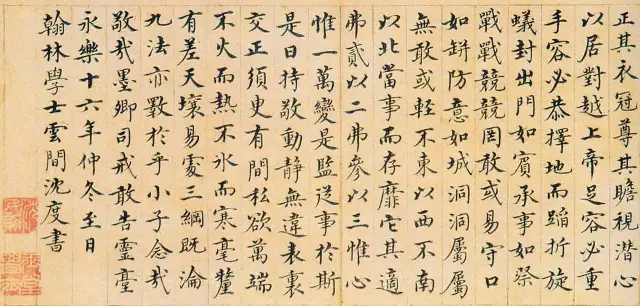 正其衣冠尊其瞻視潛心
以居對越上帝足容必重
手容必恭擇地而蹈折旋
蟻封出門如賓承事如祭
戰戰兢兢罔敢或易守口
如缾防意如城洞洞屬屬
無敢或輕不東以西不南
以北當事而存靡它其適
弗貳以二弗參以三惟心
惟一萬變是監從事於斯
是曰持敬動靜無違表裏
交正須臾有間私欲萬端
不火而熱不氷而寒毫釐
有差天壤易處三綱既淪
九法亦斁於乎小子念哉
敬哉墨卿司戒敢告靈臺
永樂十六年仲冬至日
翰林學士雲間沈度書